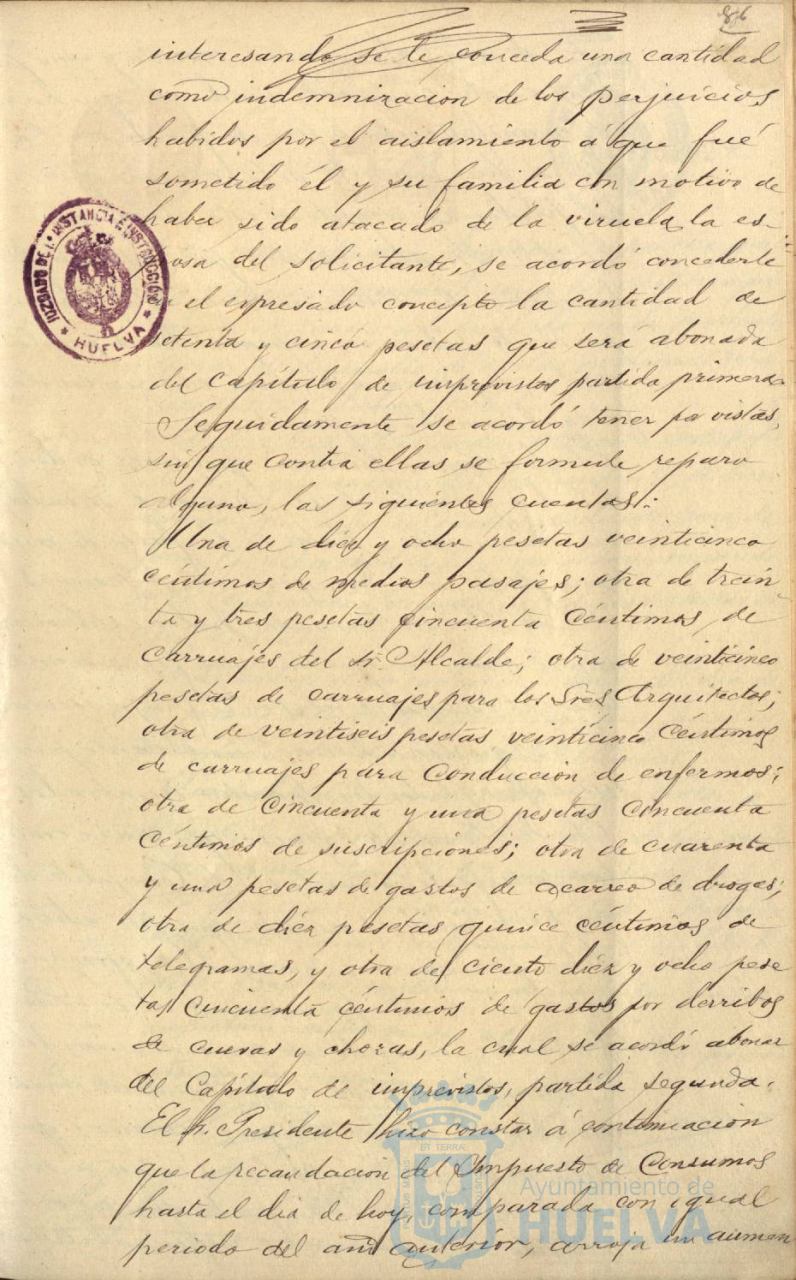 86
interesando se le conceda una cantidad
como indemnizacion de los perjuicios
habidos por el aislamiento á que fué
sometido él y su familia con motivo de
haber sido atacado de la viruela la es-
posa del solicitante, se acordó concederle
el expresado concepto la cantidad de
setenta y cinco pesetas que será abonada
del Capítulo de imprevistos partida primera.
Seguidamente se acordó tener por vistas,
sin que contra ellas se formule reparo
alguno, las siguientes cuentas:
Una de diez y ocho pesetas veinticinco
céntimos de medios pasajes; otra de trein-
ta y tres pesetas cincuenta céntimos de
carruajes del Sr. Alcalde; otra de veinticinco
pesetas de carruajes para los Sres Arquitectos;
otra de veintiseis pesetas veinticinco céntimos
de carruajes para conducción de enfermos;
otra de cincuenta y una pesetas cincuenta
céntimos de suscripciones; otra de cuarenta
y una pesetas de gastos de acarreo de drogas;
otra de diez pesetas quince céntimos de
telegramas, y otra de ciento diez y ocho pese
tas cincuenta céntimos de gastos por derribos
de cuevas y chozas, la cual se acordó abonar
del Capítulo de imprevistos, partida segunda.
El Sr. Presidente hizo constar á continuacion
que la recaudacion del Impuesto de Consumos
hasta el dia de hoy, comparada con igual
periodo del año anterior, arroja un aumen
JUZGADO DE 1ª INSTANCIA E INSTRUCCIÓN
* HUELVA *
Ayuntamiento de
HUELVA